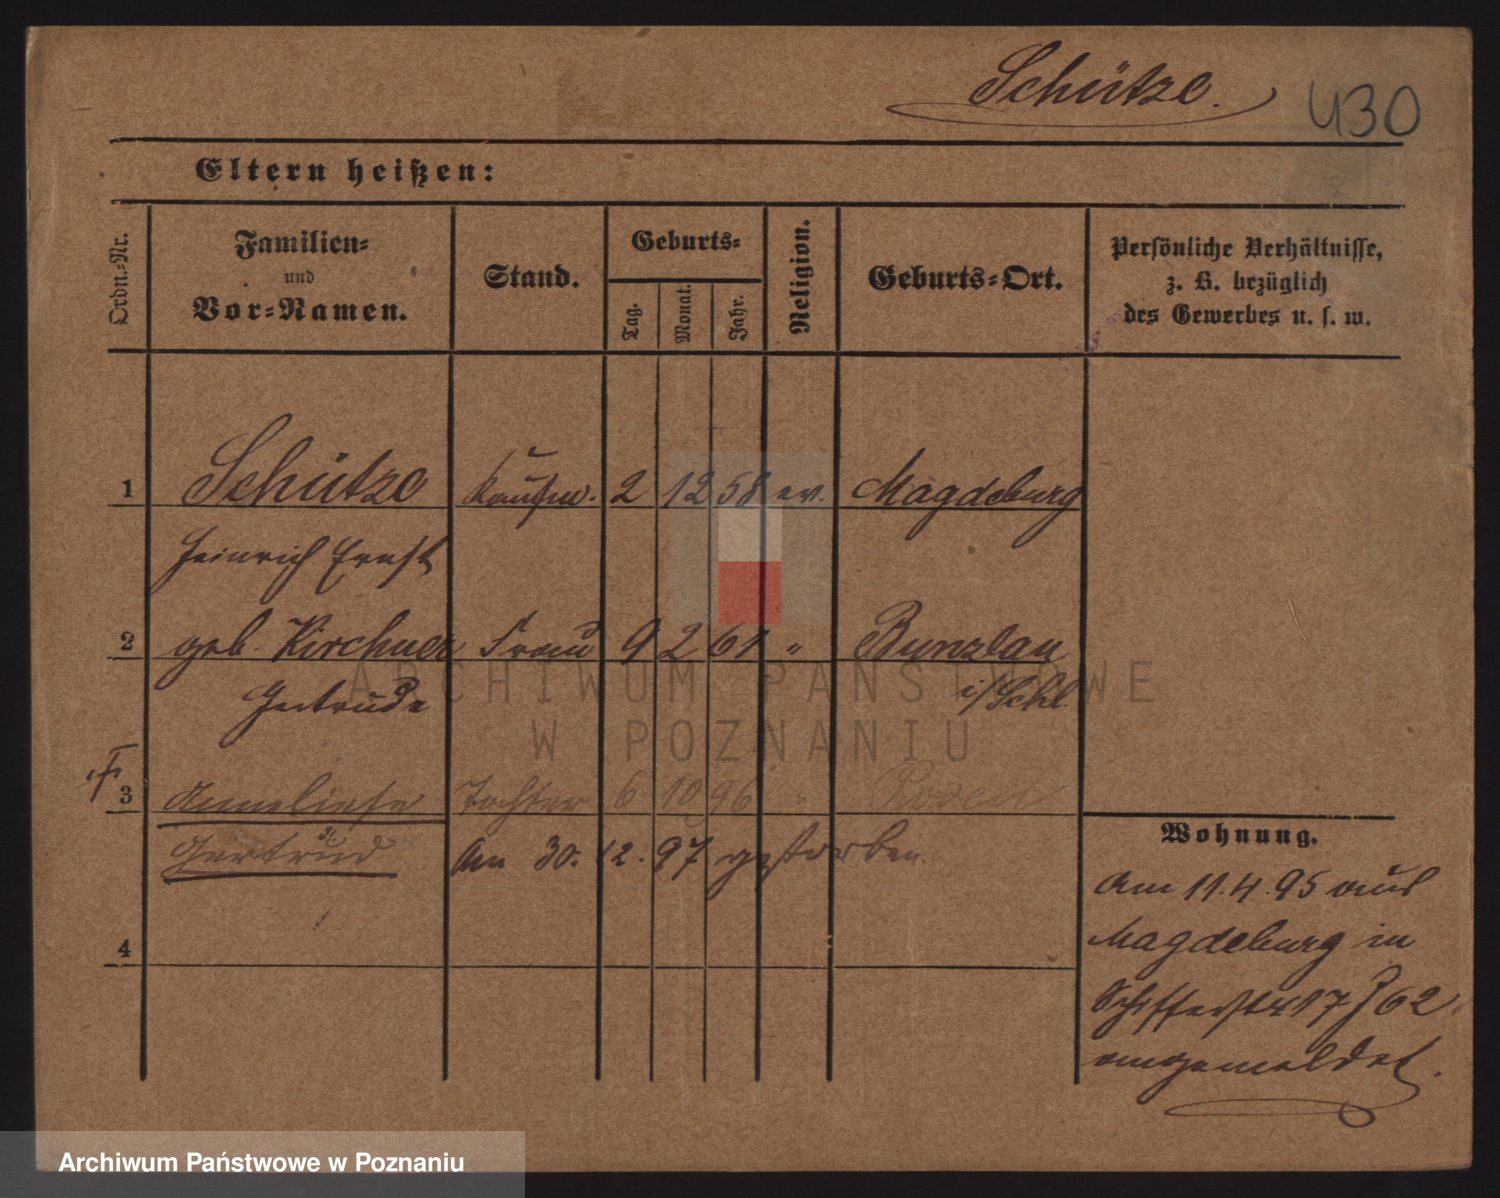 Schütze.
430
Eltern heißen:
Ordn.=Nr.
Familien=
und
Vor=Namen.
Stand.
Geburts=
Tag.
Monat.
Jahr.
Religion.
Geburts=Ort.
Persönliche Verhältnisse,
z. B. bezüglich
des Gewerbes u. s. w.
1 Schütze Kaufm. 2 12 58 ev. Magdeburg
Heinrich Ernst
2 geb. Kirchner Frau 9 2 61 " Bunzlau
Gertrude i/Schl.
3 Anneliese Tochter 6 10 96 " Posen
Gertrud Am 30. 12. 97 gestorben.
4
Wohnung.
Am 11.4.95 aus
Magdeburg in
Schifferstr 17 J 62
angemeldet.
ARCHIWUM PAŃSTWOWE
W POZNANIU
Archiwum Państwowe w Poznaniu